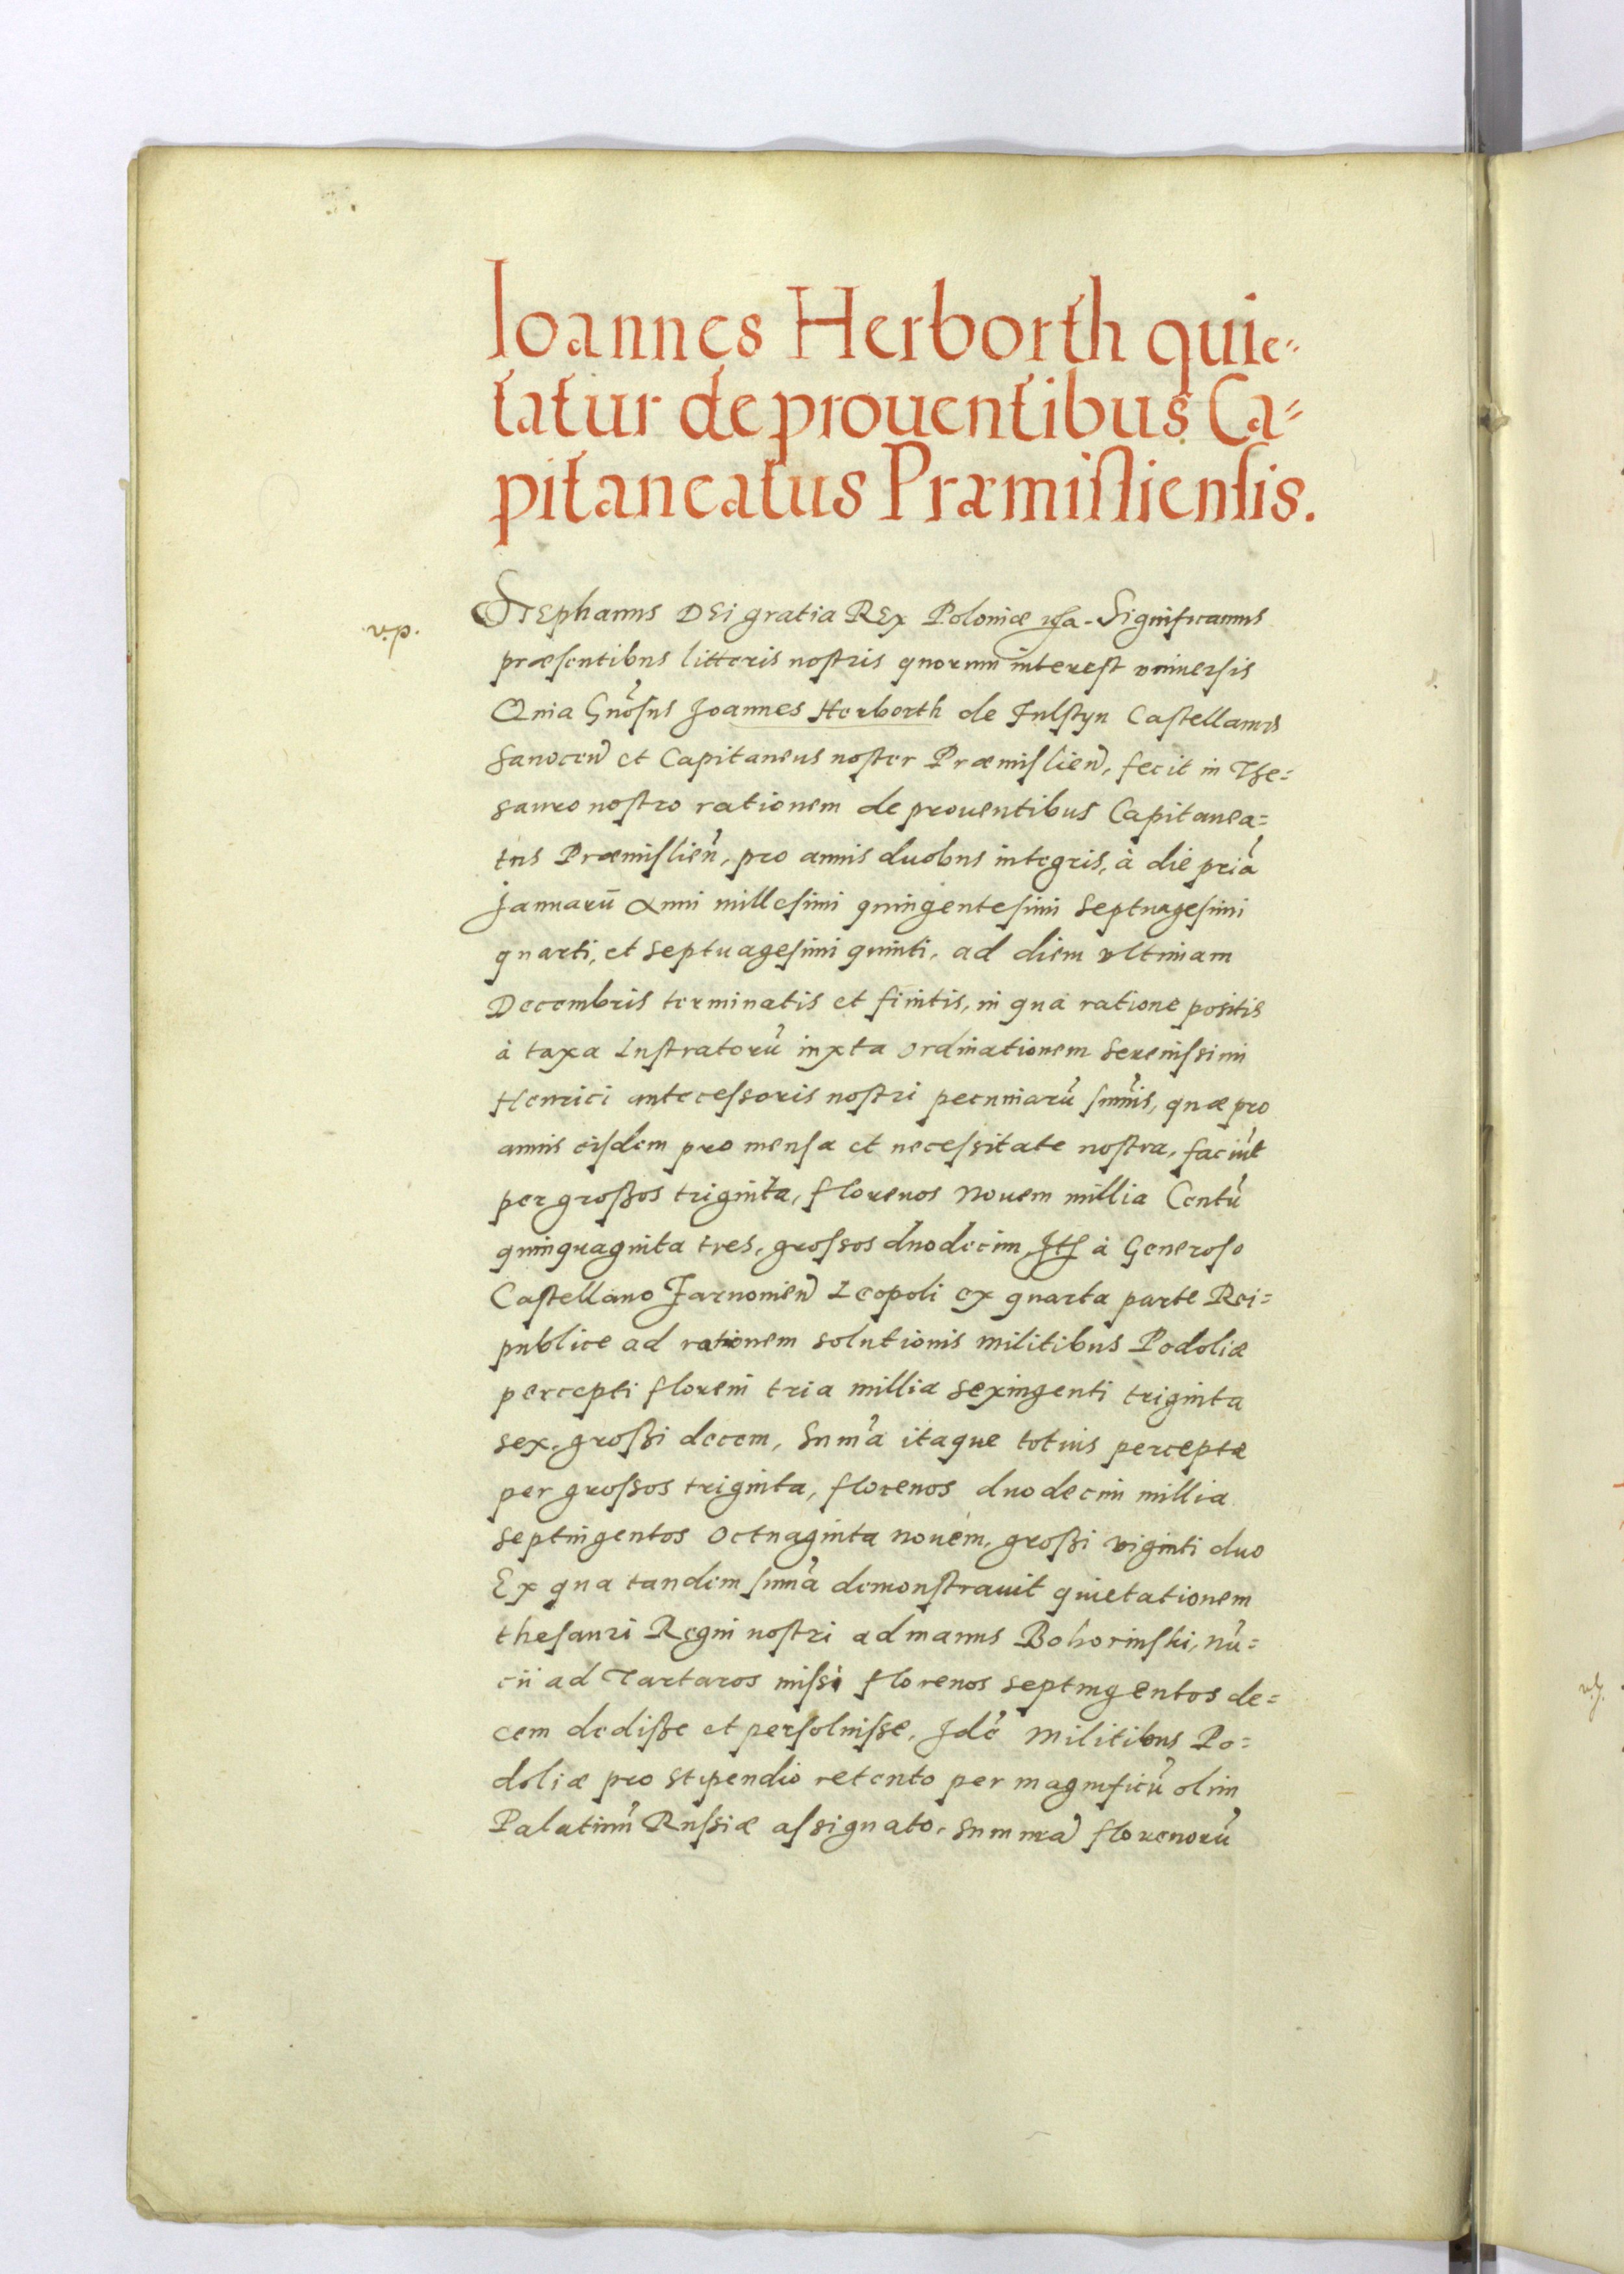 Ioannes Herborth quie-
tatur de prouentibus Ca-
pitaneatus Præmisliensis.
Stephanus Dei gratia Rex Poloniæ Significamus
præsentibus litteris nostris quorum interest vniuersis
Quia Gnosus Joannes Herborth de Fulstyn Castellanus
Sanocen et Capitaneus noster Præmislien, fecit in The=
sauro nostro rationem de prouentibus Capitanea=
tus Præmislien, pro annis duobus integris, à die pria
Januarii Anni millesimi quingentesimi septuagesimi
quarti, et septuagesimi quinti, ad diem vltimam
Decembris terminatis et finitis, in qua ratione positis
à taxa Lustratorū iuxta ordinationem serenissimi
Henrici antecessoris nostri pecuniarū sumis, quæ pro
annis eisdem pro mensa et necessitate nostra, faciūt
per großos triginta, florenos Nouem millia Centū
quinquaginta tres, grossos duodecim, Itē à Generoso
Castellano Leopoli ex quarta parte Rei=
publice ad rationem solutionis militibus Podoliæ
percepti floreni tria millia sexingenti triginta
sex, großi decem, Suma itaque totius perceptæ
per grossos triginta, florenos duodecim millia
septingentos Octuaginta nouem, großi viginti duo
Ex qua tandem suma demonstrauit quietationem
thesauri Regni nostri ad manus Bohorinski, nū=
cii ad Tartaros missi florenos septingentos de=
cem dediße et persoluisse, Idē Militibus Po=
doliæ pro stipendio retento per magnificū olim
Palatinū Russiæ assignato, summa florenorū